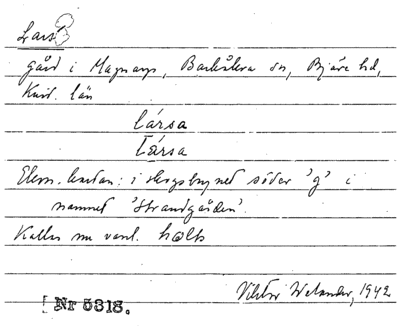 Lars
gård i Magnarp, Barkåkra sn, Bjäre hd,
Krist. län
lársa
Társa
Ekon. kartan: i skogsbrynet söder 'g' i
namnet 'Strandgården'.
Kallas nu vanl. halb
Viktor Welander, 1942
[Nr 5318.